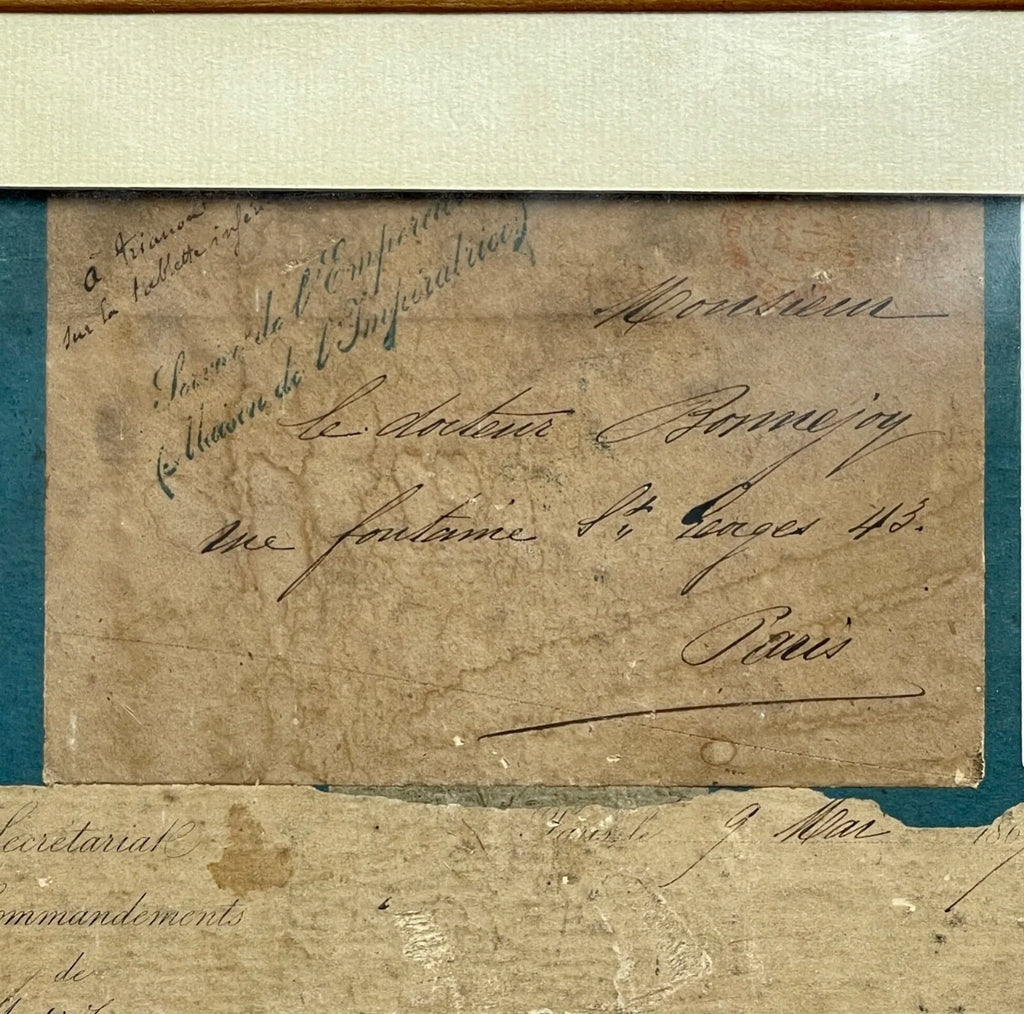 à trianon
sur la tablette infér
Service de l'Empereur
(Maison de l'Impératrice)
Monsieur
le docteur Bonnejoy
rue fontaine St. Georges 43.
Paris
Secrétariat
Paris, le 9 Mai 186
Commandements
de